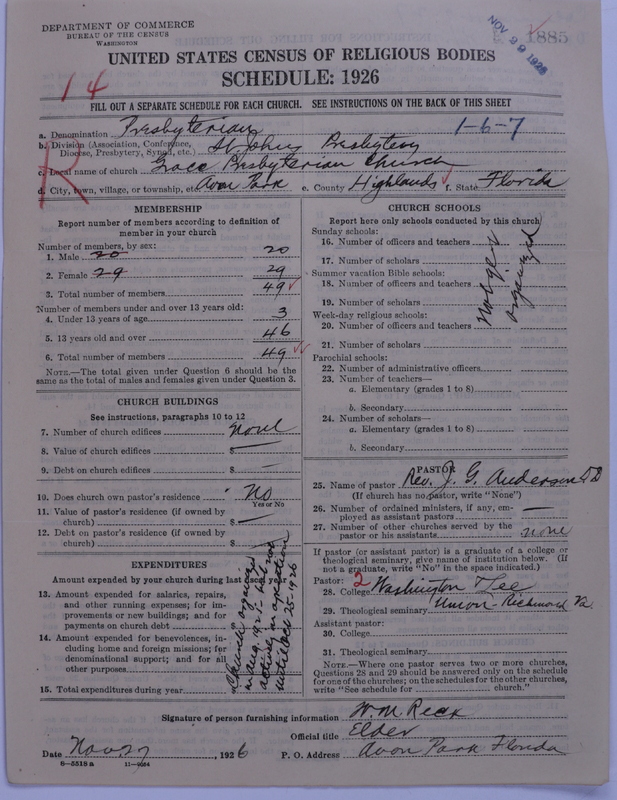 DEPARTMENT OF COMMERCE
BUREAU OF THE CENSUS
WASHINGTON
NOV 29 1926
1885
UNITED STATES CENSUS OF RELIGIOUS BODIES
SCHEDULE: 1926
14
FILL OUT A SEPARATE SCHEDULE FOR EACH CHURCH. SEE INSTRUCTIONS ON THE BACK OF THIS SHEET
a. Denomination Presbyterian 1-6-7
b. Division (Association, Conference, Diocese, Presbytery, Synod, etc.) St Johns Presbytery
c. Local name of church Grace Presbyterian Church
d. City, town, village, or township, etc. Avon Park e. County Highlands f. State Florida
R
MEMBERSHIP
Report number of members according to definition of
member in your church
Number of members, by sex:
1. Male 20 20
2. Female 29 29
3. Total number of members 49
Number of members under and over 13 years old:
4. Under 13 years of age 3
5. 13 years old and over 46
6. Total number of members 49
NOTE.—The total given under Question 6 should be the
same as the total of males and females given under Question 3.
CHURCH BUILDINGS
See instructions, paragraphs 10 to 12
7. Number of church edifices None
8. Value of church edifices $ —
9. Debt on church edifices $ —
10. Does church own pastor's residence No
Yes or No
11. Value of pastor's residence (if owned by
church) $ —
12. Debt on pastor's residence (if owned by
church) $
EXPENDITURES
Amount expended by your church during last
13. Amount expended for salaries, repairs,
and other running expenses; for im-
provements or new buildings; and for
payments on church debt
14. Amount expended for benevolences, in-
cluding home and foreign missions; for
denominational support; and for all
other purposes
15. Total expenditures during year
Church organized
in Aug. 1921 - but not
actively in operation
until Oct 25-1926
CHURCH SCHOOLS
Report here only schools conducted by this church
Sunday schools:
16. Number of officers and teachers
17. Number of scholars
Summer vacation Bible schools:
18. Number of officers and teachers
19. Number of scholars
Week-day religious schools:
20. Number of officers and teachers
21. Number of scholars
Parochial schools:
22. Number of administrative officers
23. Number of teachers—
a. Elementary (grades 1 to 8)
b. Secondary
24. Number of scholars—
a. Elementary (grades 1 to 8)
b. Secondary
Not yet
organized
PASTOR
25. Name of pastor Rev. J. G. Anderson D D
(If church has no pastor, write "None")
26. Number of ordained ministers, if any, em-
ployed as assistant pastors —
27. Number of other churches served by the
pastor or his assistants none
If pastor (or assistant pastor) is a graduate of a college or
theological seminary, give name of institution below. (If
not a graduate, write "No" in the space indicated.)
Pastor: 2
28. College Washington & Lee
29. Theological seminary Union - Richmond Va.
Assistant pastor:
30. College
31. Theological seminary
NOTE.—Where one pastor serves two or more churches,
Questions 28 and 29 should be answered only on the schedule
for one of the churches; on the schedules for the other churches,
write "See schedule for church."
Signature of person furnishing information W. M. Reck
Official title Elder
Date Nov 27 1926 P. O. Address Avon Park Florida
8-5518 a 11-9564